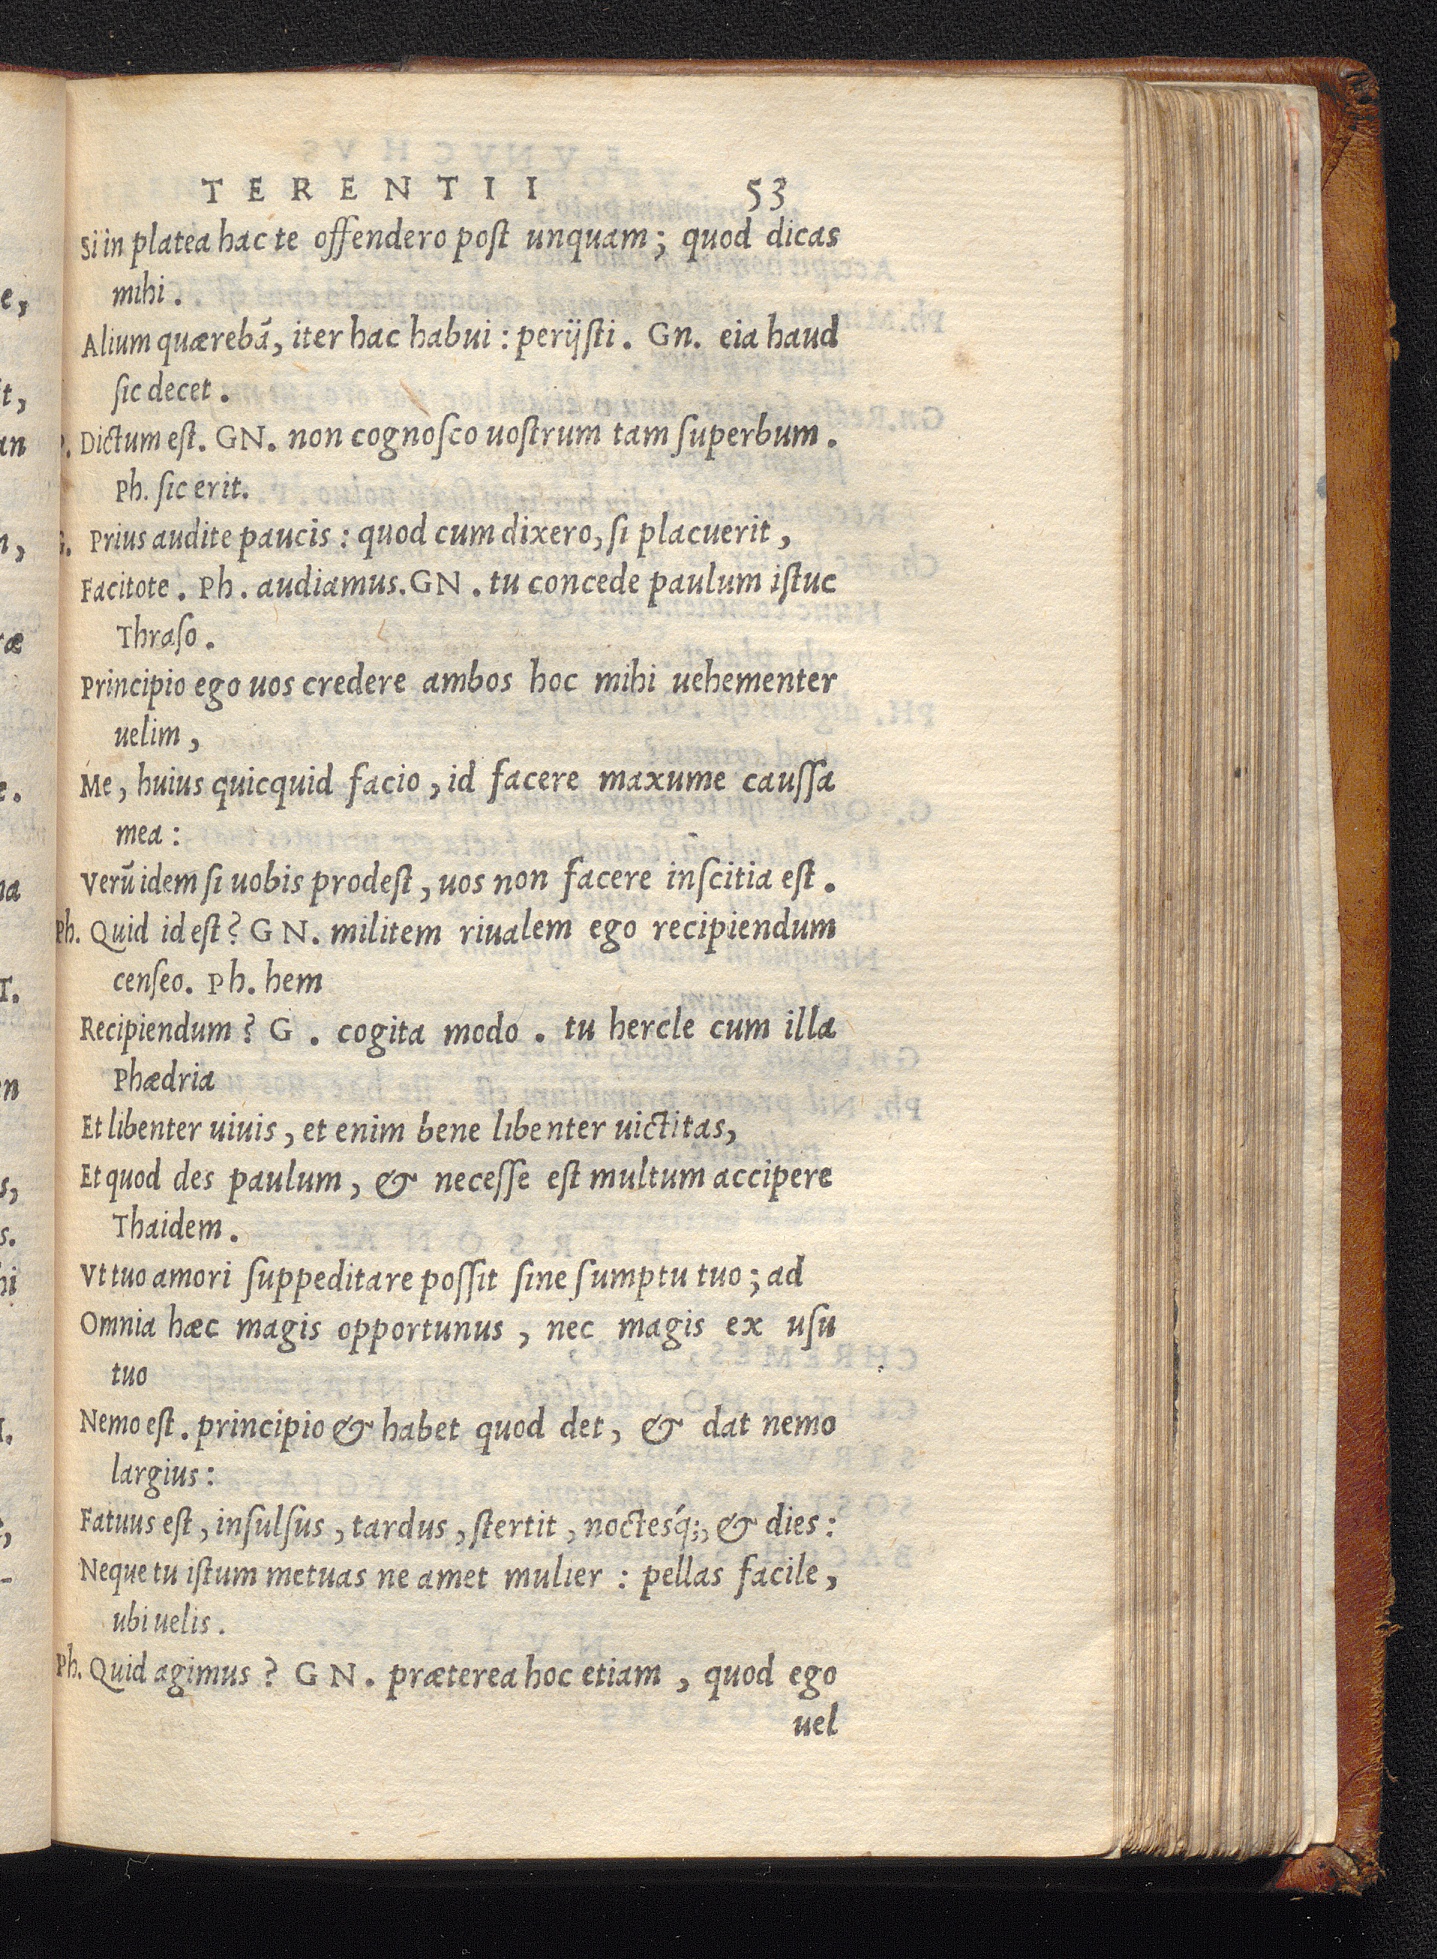 TERENTII 53
Si in platea hac te offendero post unquam; quod dicas
mihi.
Alium quærebā, iter hac habui: perijsti. Gn. eia haud
sic decet.
P. Dictum est. GN. non cognosco uostrum tam superbum.
Ph. sic erit.
G. Prius audite paucis: quod cum dixero, si placuerit,
Facitote. Ph. audiamus. GN. tu concede paulum istuc
Thraso.
Principio ego uos credere ambos hoc mihi uehementer
uelim,
Me, huius quicquid facio, id facere maxume caussa
mea:
Verū idem si uobis prodest, uos non facere inscitia est.
Ph. Quid id est? GN. militem riualem ego recipiendum
censeo. Ph. hem
Recipiendum? G. cogita modo. tu hercle cum illa
Phædria
Et libenter uiuis, et enim bene libenter uictitas,
Et quod des paulum, & necesse est multum accipere
Thaidem.
Vt tuo amori suppeditare possit sine sumptu tuo; ad
Omnia hæc magis opportunus, nec magis ex usu
tuo
Nemo est. principio & habet quod det, & dat nemo
largius:
Fatuus est, insulsus, tardus, stertit, noctesq́;, & dies:
Neque tu istum metuas ne amet mulier: pellas facile,
ubi uelis.
Ph. Quid agimus? GN. præterea hoc etiam, quod ego
uel